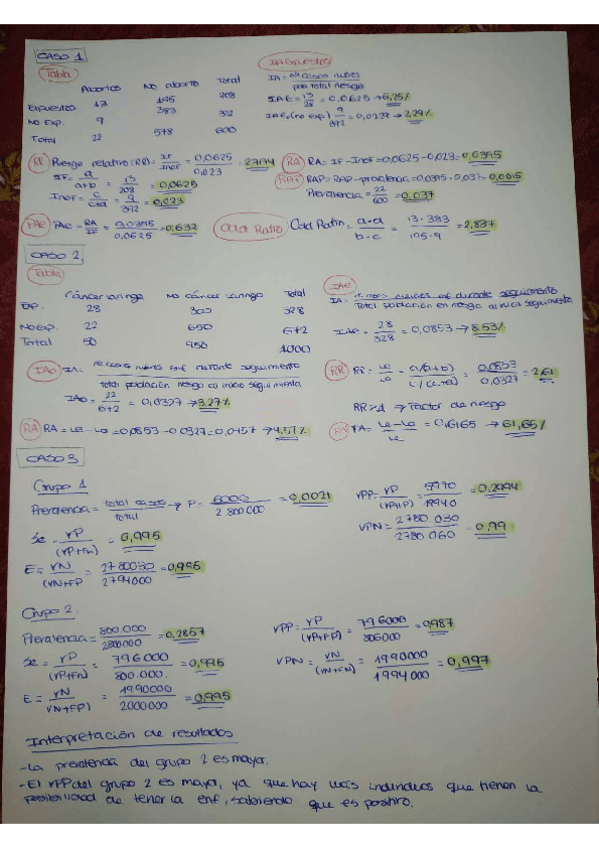 CASO 1
Tabla
Abortos No aborto Total
Expuestos 13 195 208
No Exp. 9 383 392
Total 22 578 600
IA Expuestos
IA = nº casos nuevos
pob total riesgo
IAE = 13/208 = 0,0625 → 6,25%
IAE (no exp) 9/392 = 0,0229 → 2,29%
RR Riesgo relativo (RR) = IE/Inoe = 0,0625/0,023 =
IE = a/a+b = 13/208 = 0,0625
Inoe = c/c+d = 9/392 = 0,023
RA RA = IE - Inoe = 0,0625 - 0,023 = 0,0395
RAP RAP = RAP · prevalencia = 0,0395 · 0,037 = 0,0015
Prevalencia = 22/600 = 0,037
PAE PAE = RA/IE = 0,0395/0,0625 = 0,632
Odd Ratio Odd Ratio = a·d/b·c = 13·383/195·9 = 2,837
CASO 2
Tabla
Cáncer laringe No cáncer laringe Total
Exp. 28 300 328
No Exp. 22 650 672
Total 50 950 1000
IAE
IA = nº casos nuevos enf durante seguimiento
Total población en riesgo al inicio seguimiento
IAe = 28/328 = 0,0853 → 8,53%
IAo IA = nº casos nuevos enf durante seguimiento
total población riesgo al inicio seguimiento
IAo = 22/672 = 0,0327 → 3,27%
RR RR = Ie/Io = a/(a+b)/c/(c+d) = 0,0853/0,0327 = 2,61
RR>1 → Factor de riesgo
RA RA = Ie - Io = 0,0853 - 0,0327 = 0,0457 → 4,57%
FA = Ie - Io/Ie = 0,6165 → 61,65%
CASO 3
Grupo 1
Prevalencia = total casos/total → P = 6000/2 800 000 = 0,0021
Se = VP/(VP+FN) = 0,995
E = VN/(VN+FP) = 2780030/2794000 = 0,995
VPP = VP/(VP+FP) = 5970/19940 = 0,2994
VPN = 2780 030/2780 060 = 0,99
Grupo 2
Prevalencia = 800.000/2800000 = 0,2857
Se = VP/(VP+FN) = 796000/800.000 = 0,995
E = VN/VN+FP) = 1990000/2000000 = 0,995
VPP = VP/(VP+FP) = 796000/806000 = 0,987
VPN = VN/(VN+FN) = 1990000/1994000 = 0,997
Interpretación de resultados
-La prevalencia del grupo 2 es mayor.
-El VPP del grupo 2 es mayor, ya que hay más individuos que tienen la
posibilidad de tener la enf, sabiendo que es positivo.